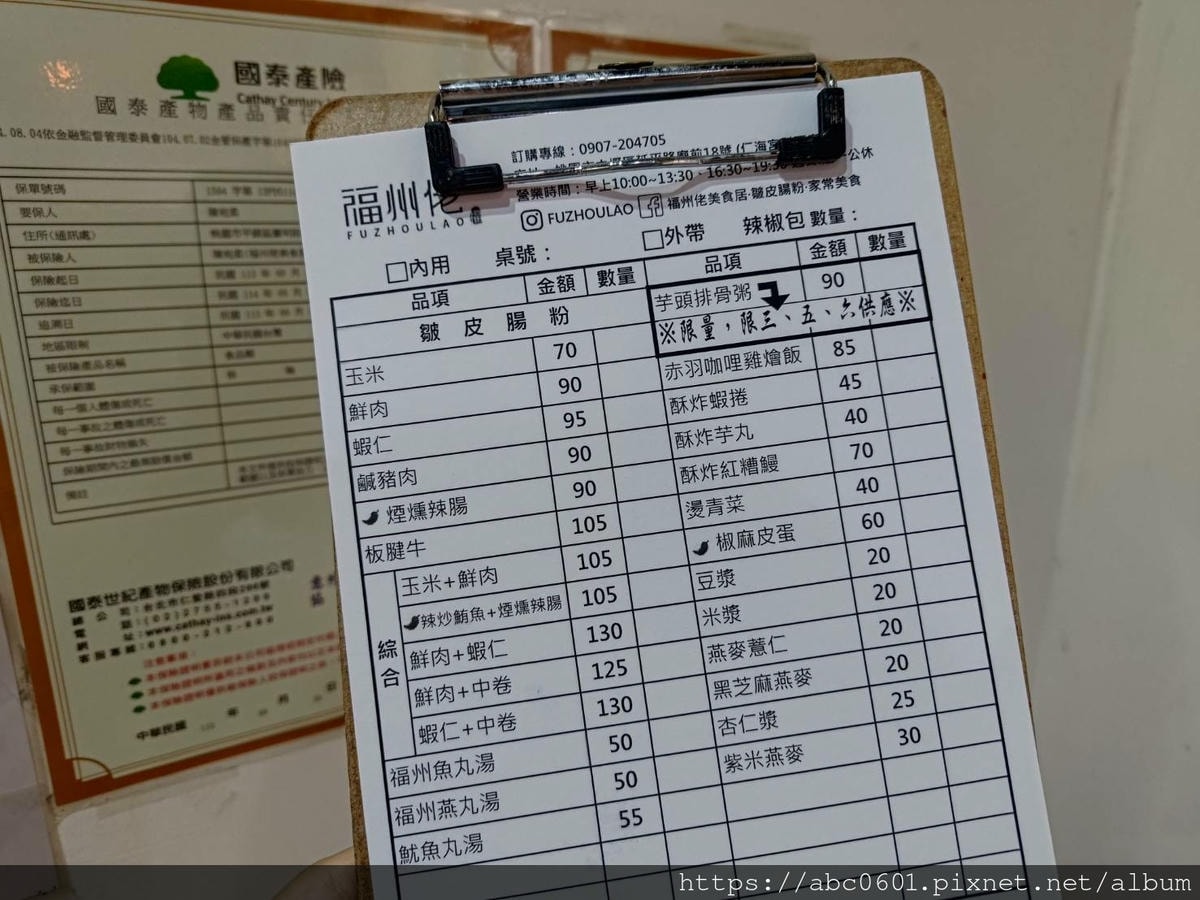 國泰產險
Cathay Century
國泰產物產品責任
保單號碼
要保人
住所(通訊處)
被保險人
保險起日
保險迄日
追溯日
地區限制
被保險產品名稱
承保範圍
每一個人體傷或死亡
每一事故之體傷或死亡
每一事故財物損失
保險期間內之最高賠償金額
備註
國泰世紀產物保險股份有限公司
www.cathay-ins.com.tw
注意事項:
中華民國 年 月
訂購專線:0907-204705
營業時間:早上10:00~13:30、16:30~19:30
公休
福州佬
FUZHOULAO
FUZHOULAO 福州佬美食居·皺皮腸粉·家常美食
□內用 桌號: □外帶 辣椒包 數量:
品項 金額 數量
皺皮腸粉
玉米 70
鮮肉 90
蝦仁 95
鹹豬肉 90
煙燻辣腸 90
板腱牛 105
綜合
玉米+鮮肉 105
辣炒鮪魚+煙燻辣腸 105
鮮肉+蝦仁 130
鮮肉+中卷 125
蝦仁+中卷 130
福州魚丸湯 50
福州燕丸湯 50
魷魚丸湯 55
品項 金額 數量
芋頭排骨粥 90
※限量,限三、五、六供應※
赤羽咖哩雞燴飯 85
酥炸蝦捲 45
酥炸芋丸 40
酥炸紅糟鰻 70
燙青菜 40
椒麻皮蛋 60
豆漿 20
米漿 20
燕麥薏仁 20
黑芝麻燕麥 20
杏仁漿 25
紫米燕麥 30
https://abc0601.pixnet.net/album